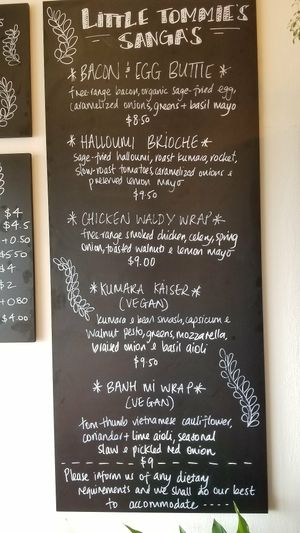 LITTLE TOMMIE'S
SANGA'S
* BACON & EGG BUTTIE *
free-range bacon, organic sage-fried egg,
caramelized onions, greens + basil mayo
$8.50
* HALLOUMI BRIOCHE *
sage-fried halloumi, roast kumara, rocket,
slow-roast tomatoes, caramelized onions &
preserved lemon mayo
$9.50
* CHICKEN WALDY WRAP *
free-range smoked chicken, celery, spring
onion, toasted walnuts & lemon mayo
$9.00
* KUMARA KAISER *
(VEGAN)
kumara & bean smash, capsicum &
walnut pesto, greens, mozzarella,
braised onion & basil aioli
$9.50
* BANH MI WRAP *
(VEGAN)
tom-thumb vietnamese cauliflower,
coriander + lime aioli, seasonal
slaw & pickled red onion
$9
Please inform us of any dietary
requirements and we shall do our best
to accommodate -----
$4
$4.5
+0.50
$5.50
$4
$2
+0.80
$4.00